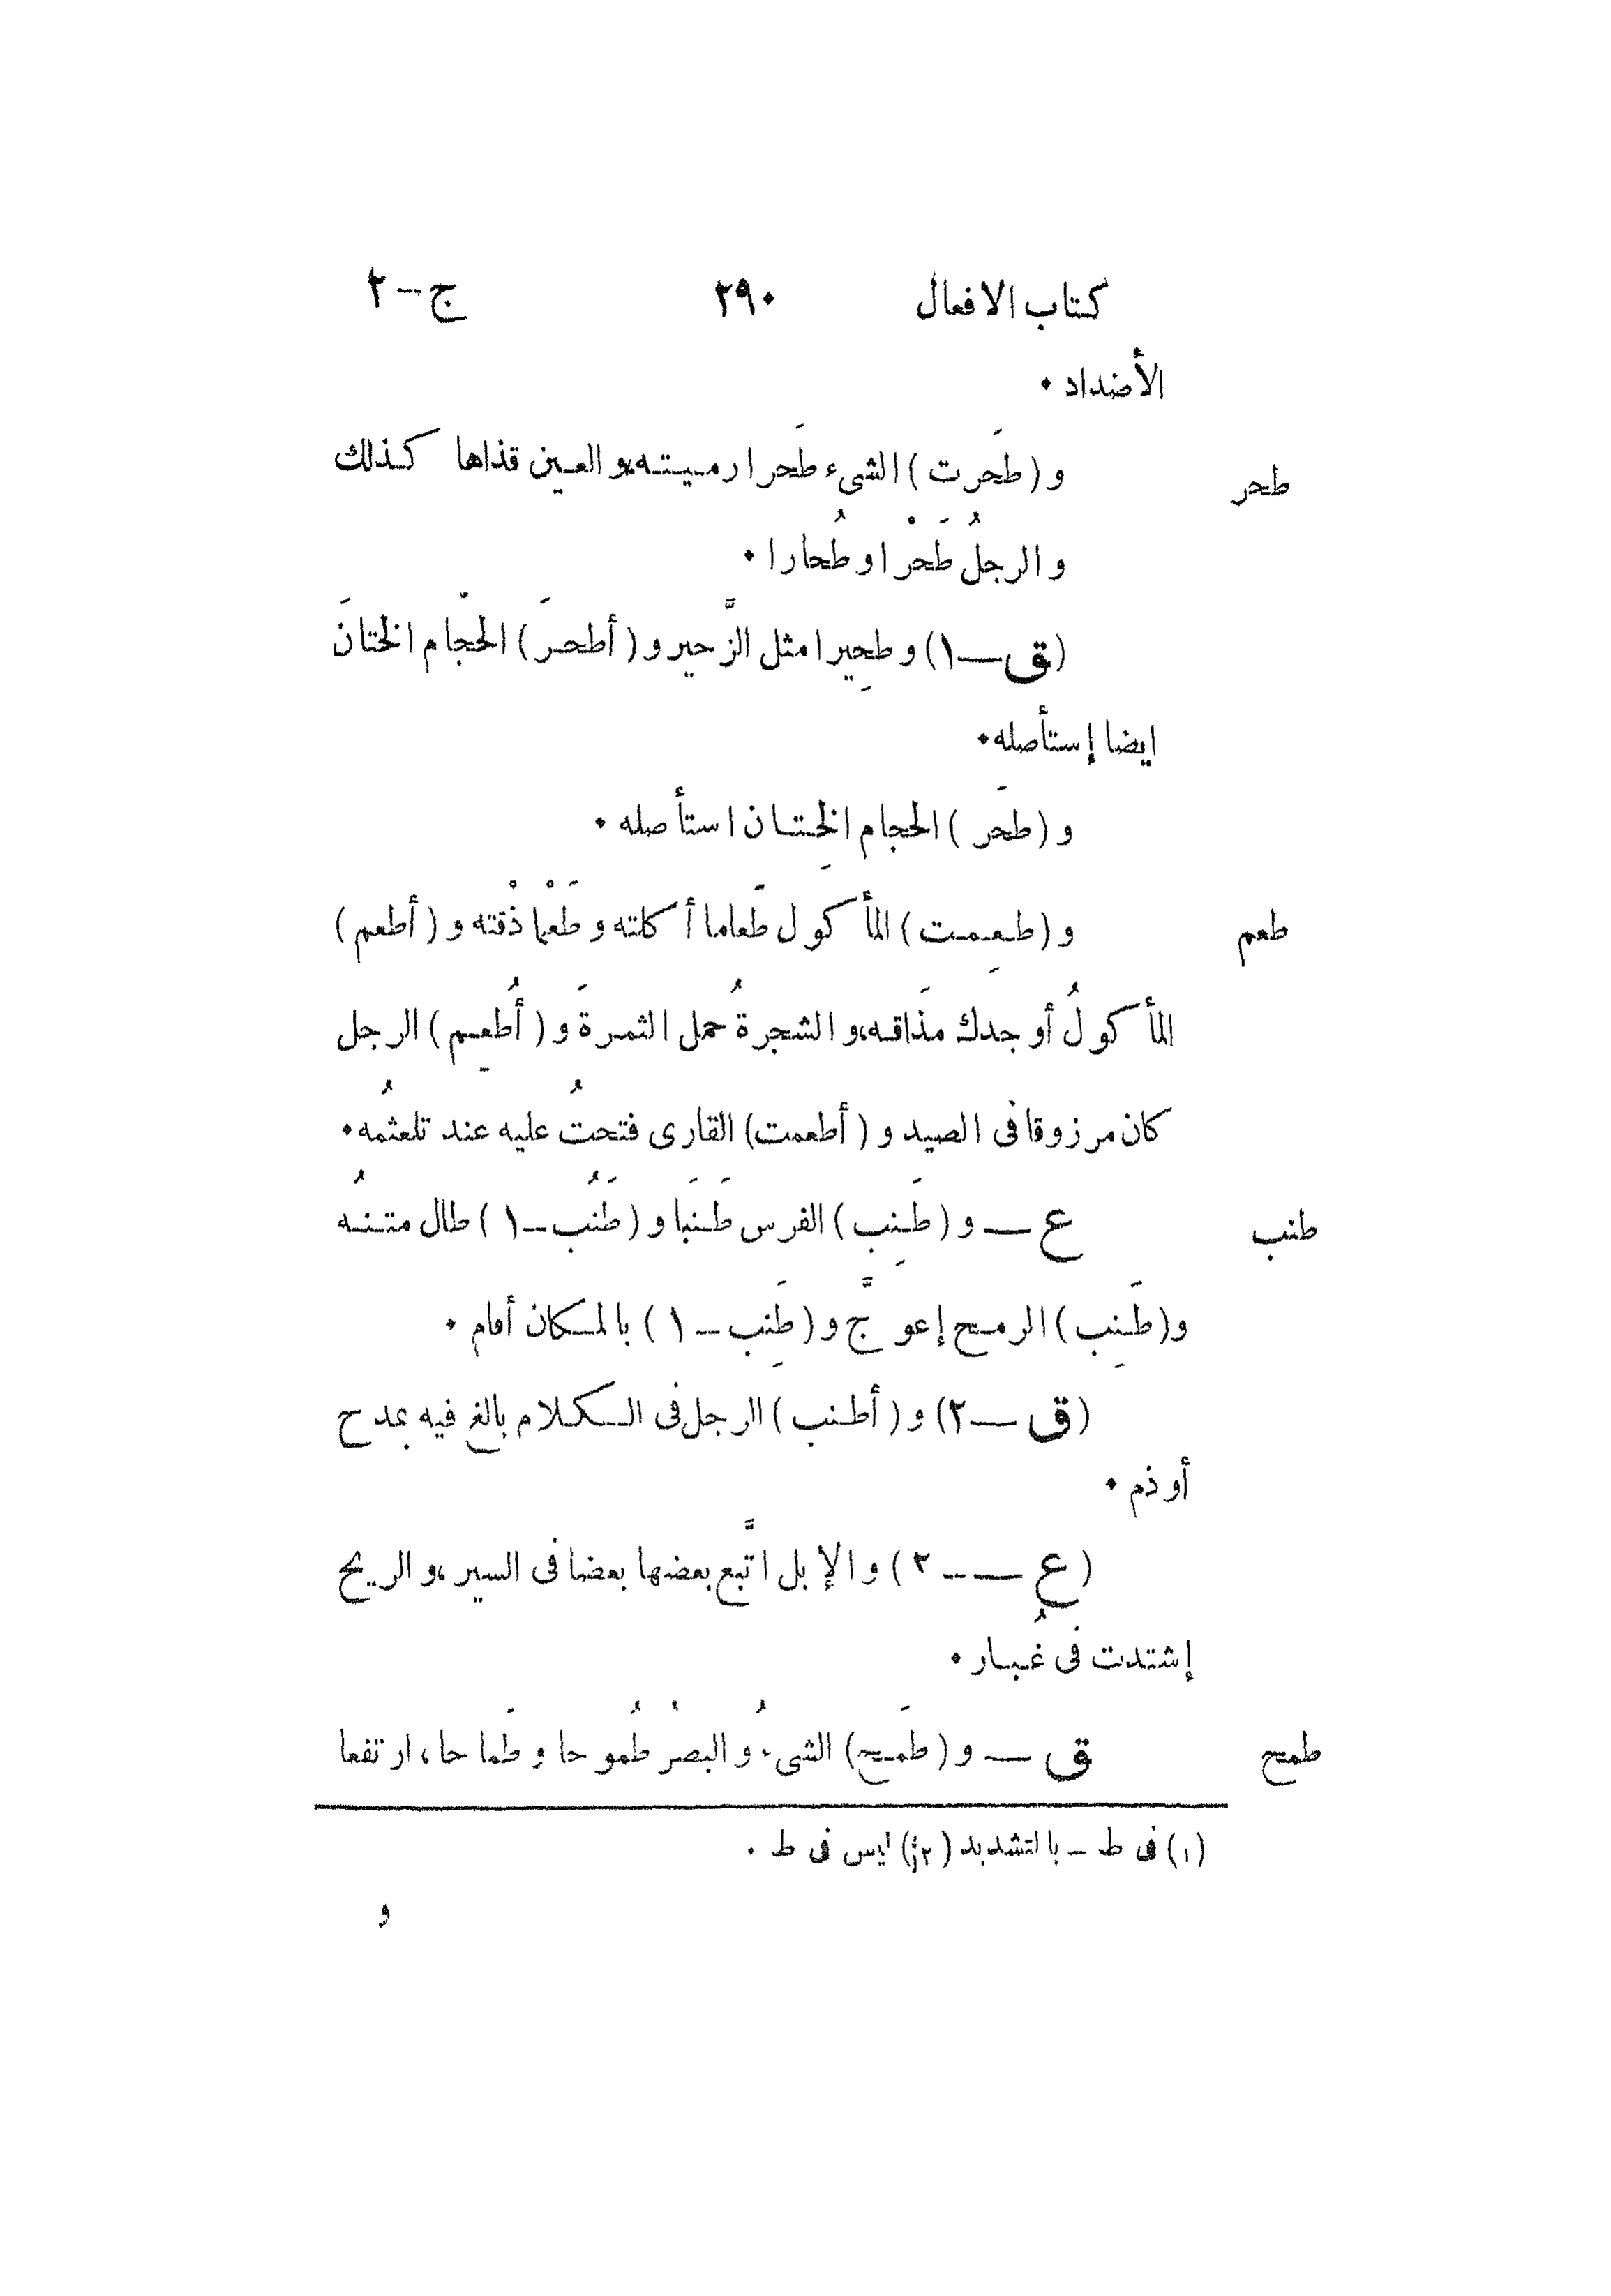 كتاب الافعال ٢٩٠ ج-٢
الأضداد ٠
طحر و (طَحَرت) الشىء طَحرا رميته، والعين قذاها كذلك
و الرجلُ طَحْرا و طُحارا ٠
(ق—١) و طحِيرا مثل الزَّحير و (أطحرَ) الحجّام الختانَ
ايضا إستأصله٠
و (طحَر) الحجام الخِتان استأصله ٠
طعم و (طعِمت) المأكول طَعاما أكلته و طَعْما ذْقته و (أطعم)
المأكولُ أوجدك مذَاقه، و الشجرةُ حمل الثمرةَ و (أُطعِم) الرجل
كان مرزوقا فى الصيد و (أطعمت) القارى فتحتُ عليه عند تلعثمُه٠
طنب ع — و (طَنِب) الفرس طَنَبا و (طَنُب–١) طال متنُه
و(طَنِب) الرمح إعوجَّ و (طَنِب–١) بالمكان أقام ٠
(ق —٢) و (أطنب) الرجل فى الكلام بالغ فيه بمدح
أو ذم ٠
(ع —– ٣) و الإبل اتَّبع بعضها بعضا فى السير، و الريح
إشتدت فى غُبار ٠
طمح ق — و (طَمح) الشىءُ و البصرُ طُموحا و طَماحا، ارتفعا
(١) فى ط – بالتشديد (٢) ليس فى ط ٠
و